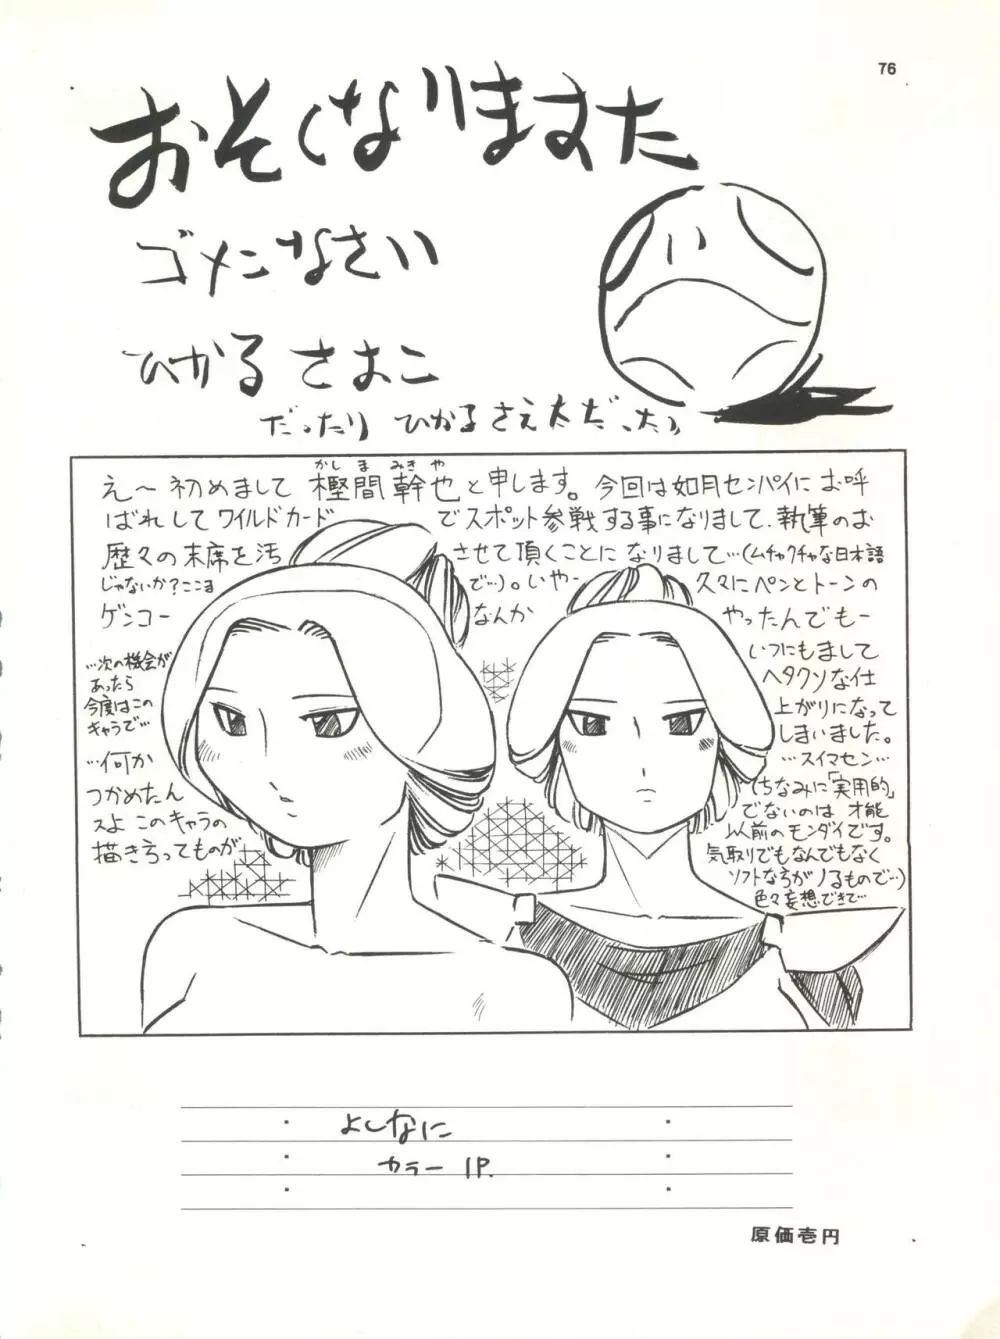 76
おそくなりますた
ゴメンなさい
ひかるさおこ
だったり ひかるさえ太だったり
かしま みきや
え〜初めまして樫間幹也と申します。今回は如月センパイにお呼
ばれしてワイルドカードでスポット参戦する事になりまして、執筆のお
歴々の末席を汚させて頂くことになりまして…(ムチャクチャな日本語
じゃないか?ここまで…)。いやー久々にペンとトーンの
ゲンコーなんかやったんでもー
いつにもまして
ヘタクソな仕
上がりになって
しまいました。
…スイマセン…
(ちなみに「実用的」
でないのは才能
以前のモンダイです。
気取りでもなんでもなく
ソフトな方がノるもので…)
色々妄想できて…
…次の機会が
あったら
今度はこの
キャラで…
…何か
つかめたん
スよ このキャラの
描き方ってものが
よしなに
カラー 1P.
原価壱円